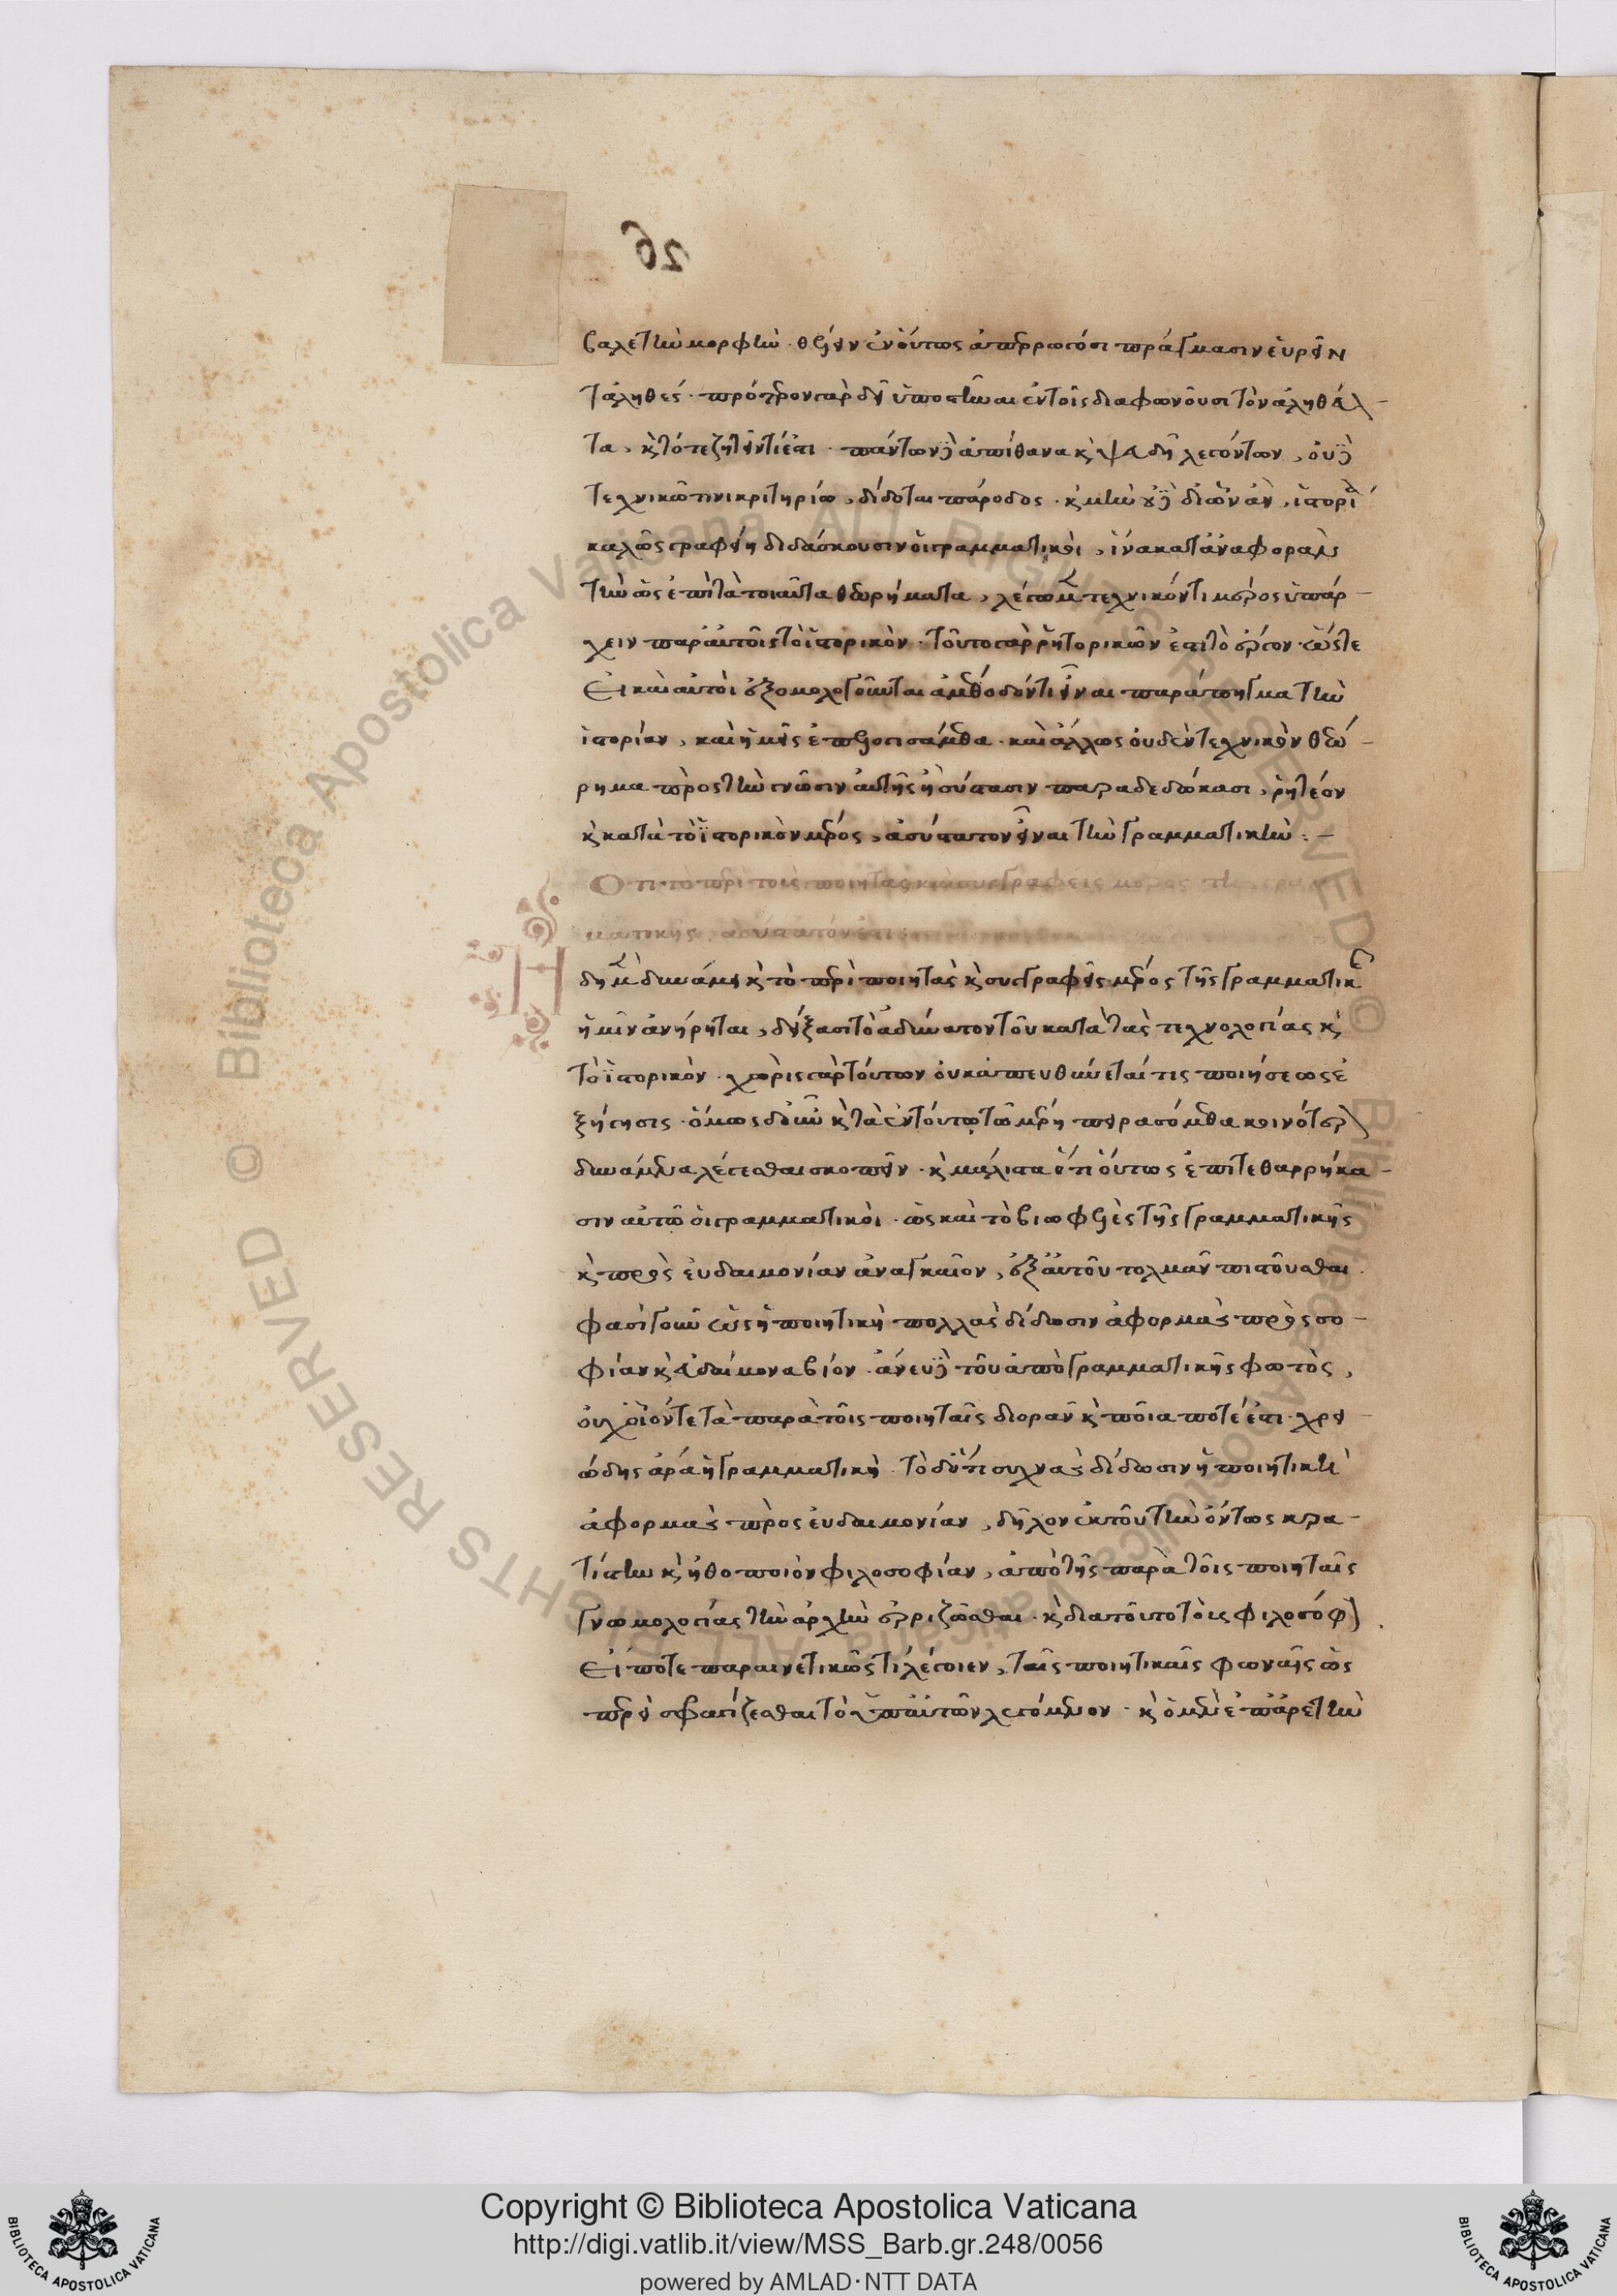 βαλε τὴν μορφήν· ὅθεν ἐν οὕτως ἀπορρωγόσι πράγμασιν εὑρεῖν
τἀληθές· πρότερον γὰρ δεῖ ὑποστῆναι ἐν τοῖς διαφωνοῦσι τὸν ἀληθεύον-
τα, καὶ τότε ζητεῖν τί ἐστι· πάντων δὲ ἀπίθανα καὶ ψευδῆ λεγόντων, οὐδὲ
τεχνικῶ τινι κριτηρίω, δίδοται πάροδος· καὶ μὴν οὐδὲ δι' ὧν ἂν, ἱστορία
καλῶς γραφείη διδάσκουσιν οἱ γραμματικοὶ, ἵνα κατ' ἀναφορὰν
τὴν ὡς ἐπὶ τὰ τοιαῦτα θεωρήματα, λέγωμεν τεχνικόν τι μέρος ὑπάρ-
χειν παρ' αὐτοῖς τὸ ἱστορικὸν· τοῦτο γὰρ ῥητορικῶν ἐστι τὸ ἔργον· ὥστε
εἰ καὶ αὐτοὶ ἐξομολογοῦνται ἀμέθοδόν τι εἶναι παράπηγμα τὴν
ἱστορίαν, καὶ ἡμεῖς ἐπελογισάμεθα· καὶ ἄλλως οὐδὲν τεχνικὸν θεώ-
ρημα πρὸς τὴν γνῶσιν αὐτῆς ἢ σύστασιν παραδεδώκασι, ῥητέον
καὶ κατὰ τὸ ἱστορικὸν μέρος, ἀσύστατον εἶναι τὴν γραμματικὴν:-
Ὅτι τὸ περὶ τοὺς ποιητὰς καὶ συγγραφεῖς μέρος τῆς γραμ
ματικῆς, ἀσύστατόν ἐστι
Ἤδη μὲν δυνάμει καὶ τὸ περὶ ποιητὰς καὶ συγγραφεῖς μέρος τῆς γραμματικῆς
ἡμῖν ἀνήρηται, δείξασι τὸ ἀδύνατον τοῦ κατὰ τὰς τεχνολογίας καὶ
τὸ ἱστορικὸν· χωρὶς γὰρ τούτων οὐκ ἀπευθύνεταί τις ποιήσεως ἐ
ξήγησις· ὅμως δ' οὖν καὶ τὰ ἐν τούτω τῶ μέρη πειρασόμεθα κοινότερον
δυνάμενα λέγεσθαι σκοπεῖν· καὶ μάλιστα ὅτι οὕτως ἐπιτεθαρρήκα-
σιν αὐτῶ οἱ γραμματικοὶ· ὡς καὶ τὸ βιωφελὲς τῆς γραμματικῆς
καὶ πρὸς εὐδαιμονίαν ἀναγκαῖον, ἐξ αὐτοῦ τολμᾶν πιστοῦσθαι.
φασὶ γοῦν ὡς ἡ ποιητικὴ πολλὰς δίδωσιν ἀφορμὰς πρὸς σο-
φίαν καὶ εὐδαίμονα βίον· ἄνευ δὲ τοῦ ἀπὸ γραμματικῆς φωτὸς,
οὐχ οἷόν τε τὰ παρὰ τοῖς ποιηταῖς διορᾶν καὶ ποῖα ποτέ ἐστι· χρει-
ώδης ἄρα ἡ γραμματικὴ· τὸ δ' ὅτι συχνὰς δίδωσιν ἡ ποιητικὴ
ἀφορμὰς πρὸς εὐδαιμονίαν, δῆλον ἐκ τοῦ τὴν ὄντως κρα-
τίστην καὶ ἠθοποιὸν φιλοσοφίαν, ἀπὸ τῆς παρὰ τοῖς ποιηταῖς
γνωμολογίας τὴν ἀρχὴν ἐρριζῶσθαι· καὶ διατοῦτο τοὺς φιλοσόφους.
εἴ ποτε παραινετικῶς τι λέγοιεν, ταῖς ποιητικαῖς φωναῖς ὡς
περεὶ σφραγίζεσθαι τὸ ὑπ' αὐτῶν λεγόμενον· καὶ ὁ μὲν ἐπ' ἀρετὴν
Copyright © Biblioteca Apostolica Vaticana
http://digi.vatlib.it/view/MSS_Barb.gr.248/0056
powered by AMLAD·NTT DATA